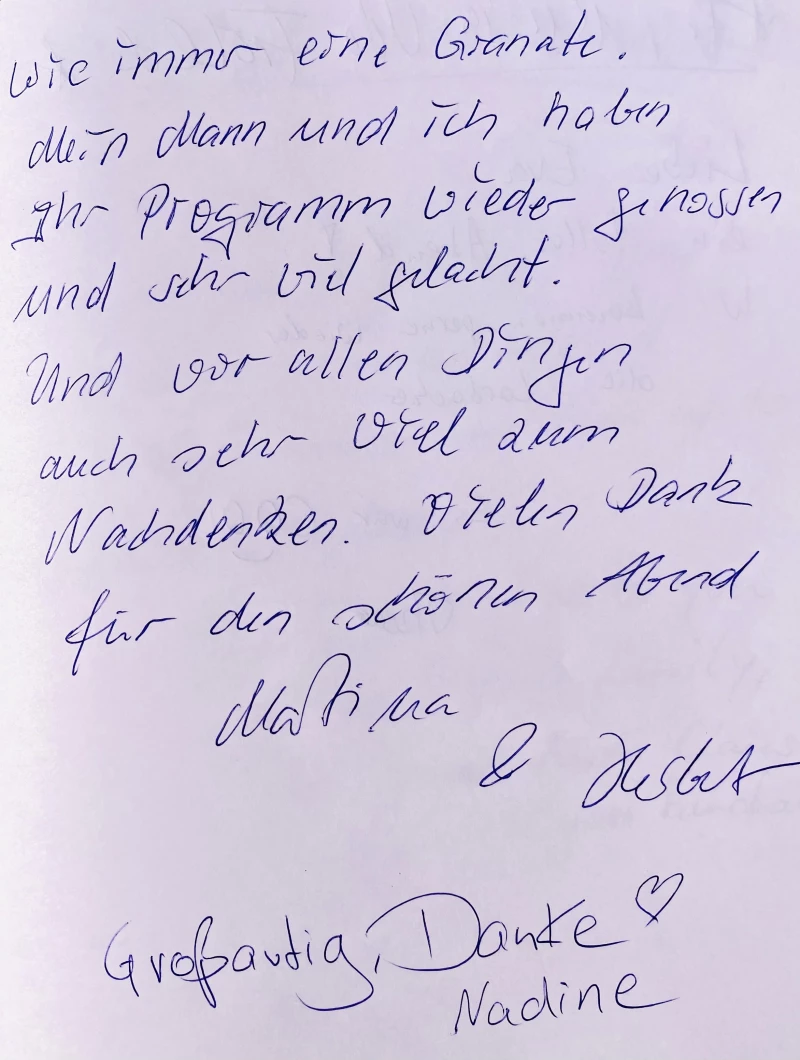 Wie immer eine Granate.
Mein Mann und ich haben
Ihr Programm wieder genossen
und sehr viel gelacht.
Und vor allen Dingen
auch sehr viel zum
Nachdenken. Vielen Dank
für den schönen Abend
Martina
& Herbert
Großartig, Danke ♡
Nadine